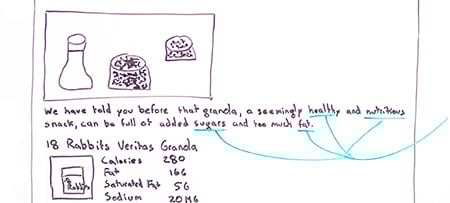 We have told you before that granola, a seemingly healthy and nutritious
snack, can be full of added sugars and too much fat.
18 Rabbits Veritas Granola
Calories 280
Fat 16G
Saturated Fat 5G
Sodium 20MG